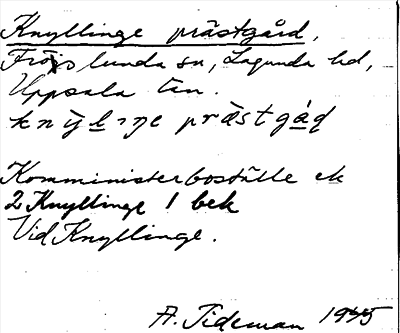 Knyllinge prästgård,
Fröslunda sn, Lagunda hd,
Uppsala län.
prästgád
Komministerboställe ek
2 Knyllinge 1 bek
Vid Knyllinge.
A. Tideman 1945